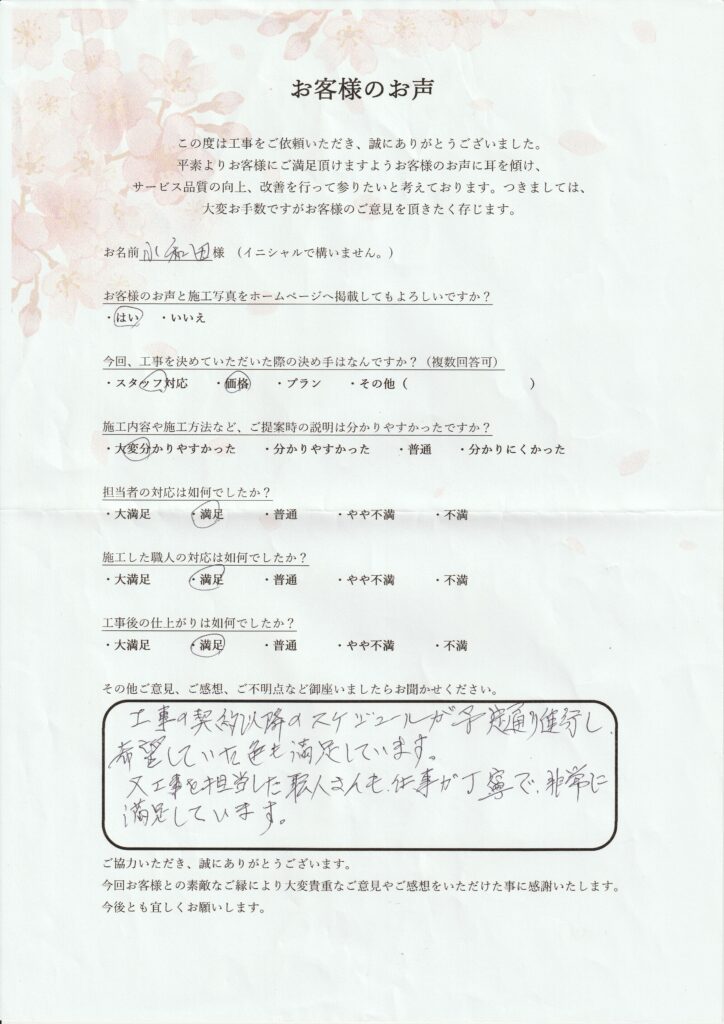 お客様のお声
この度は工事をご依頼いただき、誠にありがとうございました。
平素よりお客様にご満足頂けますようお客様のお声に耳を傾け、
サービス品質の向上、改善を行って参りたいと考えております。つきましては、
大変お手数ですがお客様のご意見を頂きたく存じます。
お名前 小和田 様 （イニシャルで構いません。）
お客様のお声と施工写真をホームページへ掲載してもよろしいですか？
・はい ・いいえ
今回、工事を決めていただいた際の決め手はなんですか？（複数回答可）
・スタッフ対応 ・価格 ・プラン ・その他（ ）
施工内容や施工方法など、ご提案時の説明は分かりやすかったですか？
・大変分かりやすかった ・分かりやすかった ・普通 ・分かりにくかった
担当者の対応は如何でしたか？
・大満足 ・満足 ・普通 ・やや不満 ・不満
施工した職人の対応は如何でしたか？
・大満足 ・満足 ・普通 ・やや不満 ・不満
工事後の仕上がりは如何でしたか？
・大満足 ・満足 ・普通 ・やや不満 ・不満
その他ご意見、ご感想、ご不明点など御座いましたらお聞かせください。
工事の契約以降のスケジュールが予定通り進行し、
希望していた色も満足しています。
又工事を担当した職人さんも、仕事が丁寧で、非常に
満足しています。
ご協力いただき、誠にありがとうございます。
今回お客様との素敵なご縁により大変貴重なご意見やご感想をいただけた事に感謝いたします。
今後とも宜しくお願いします。